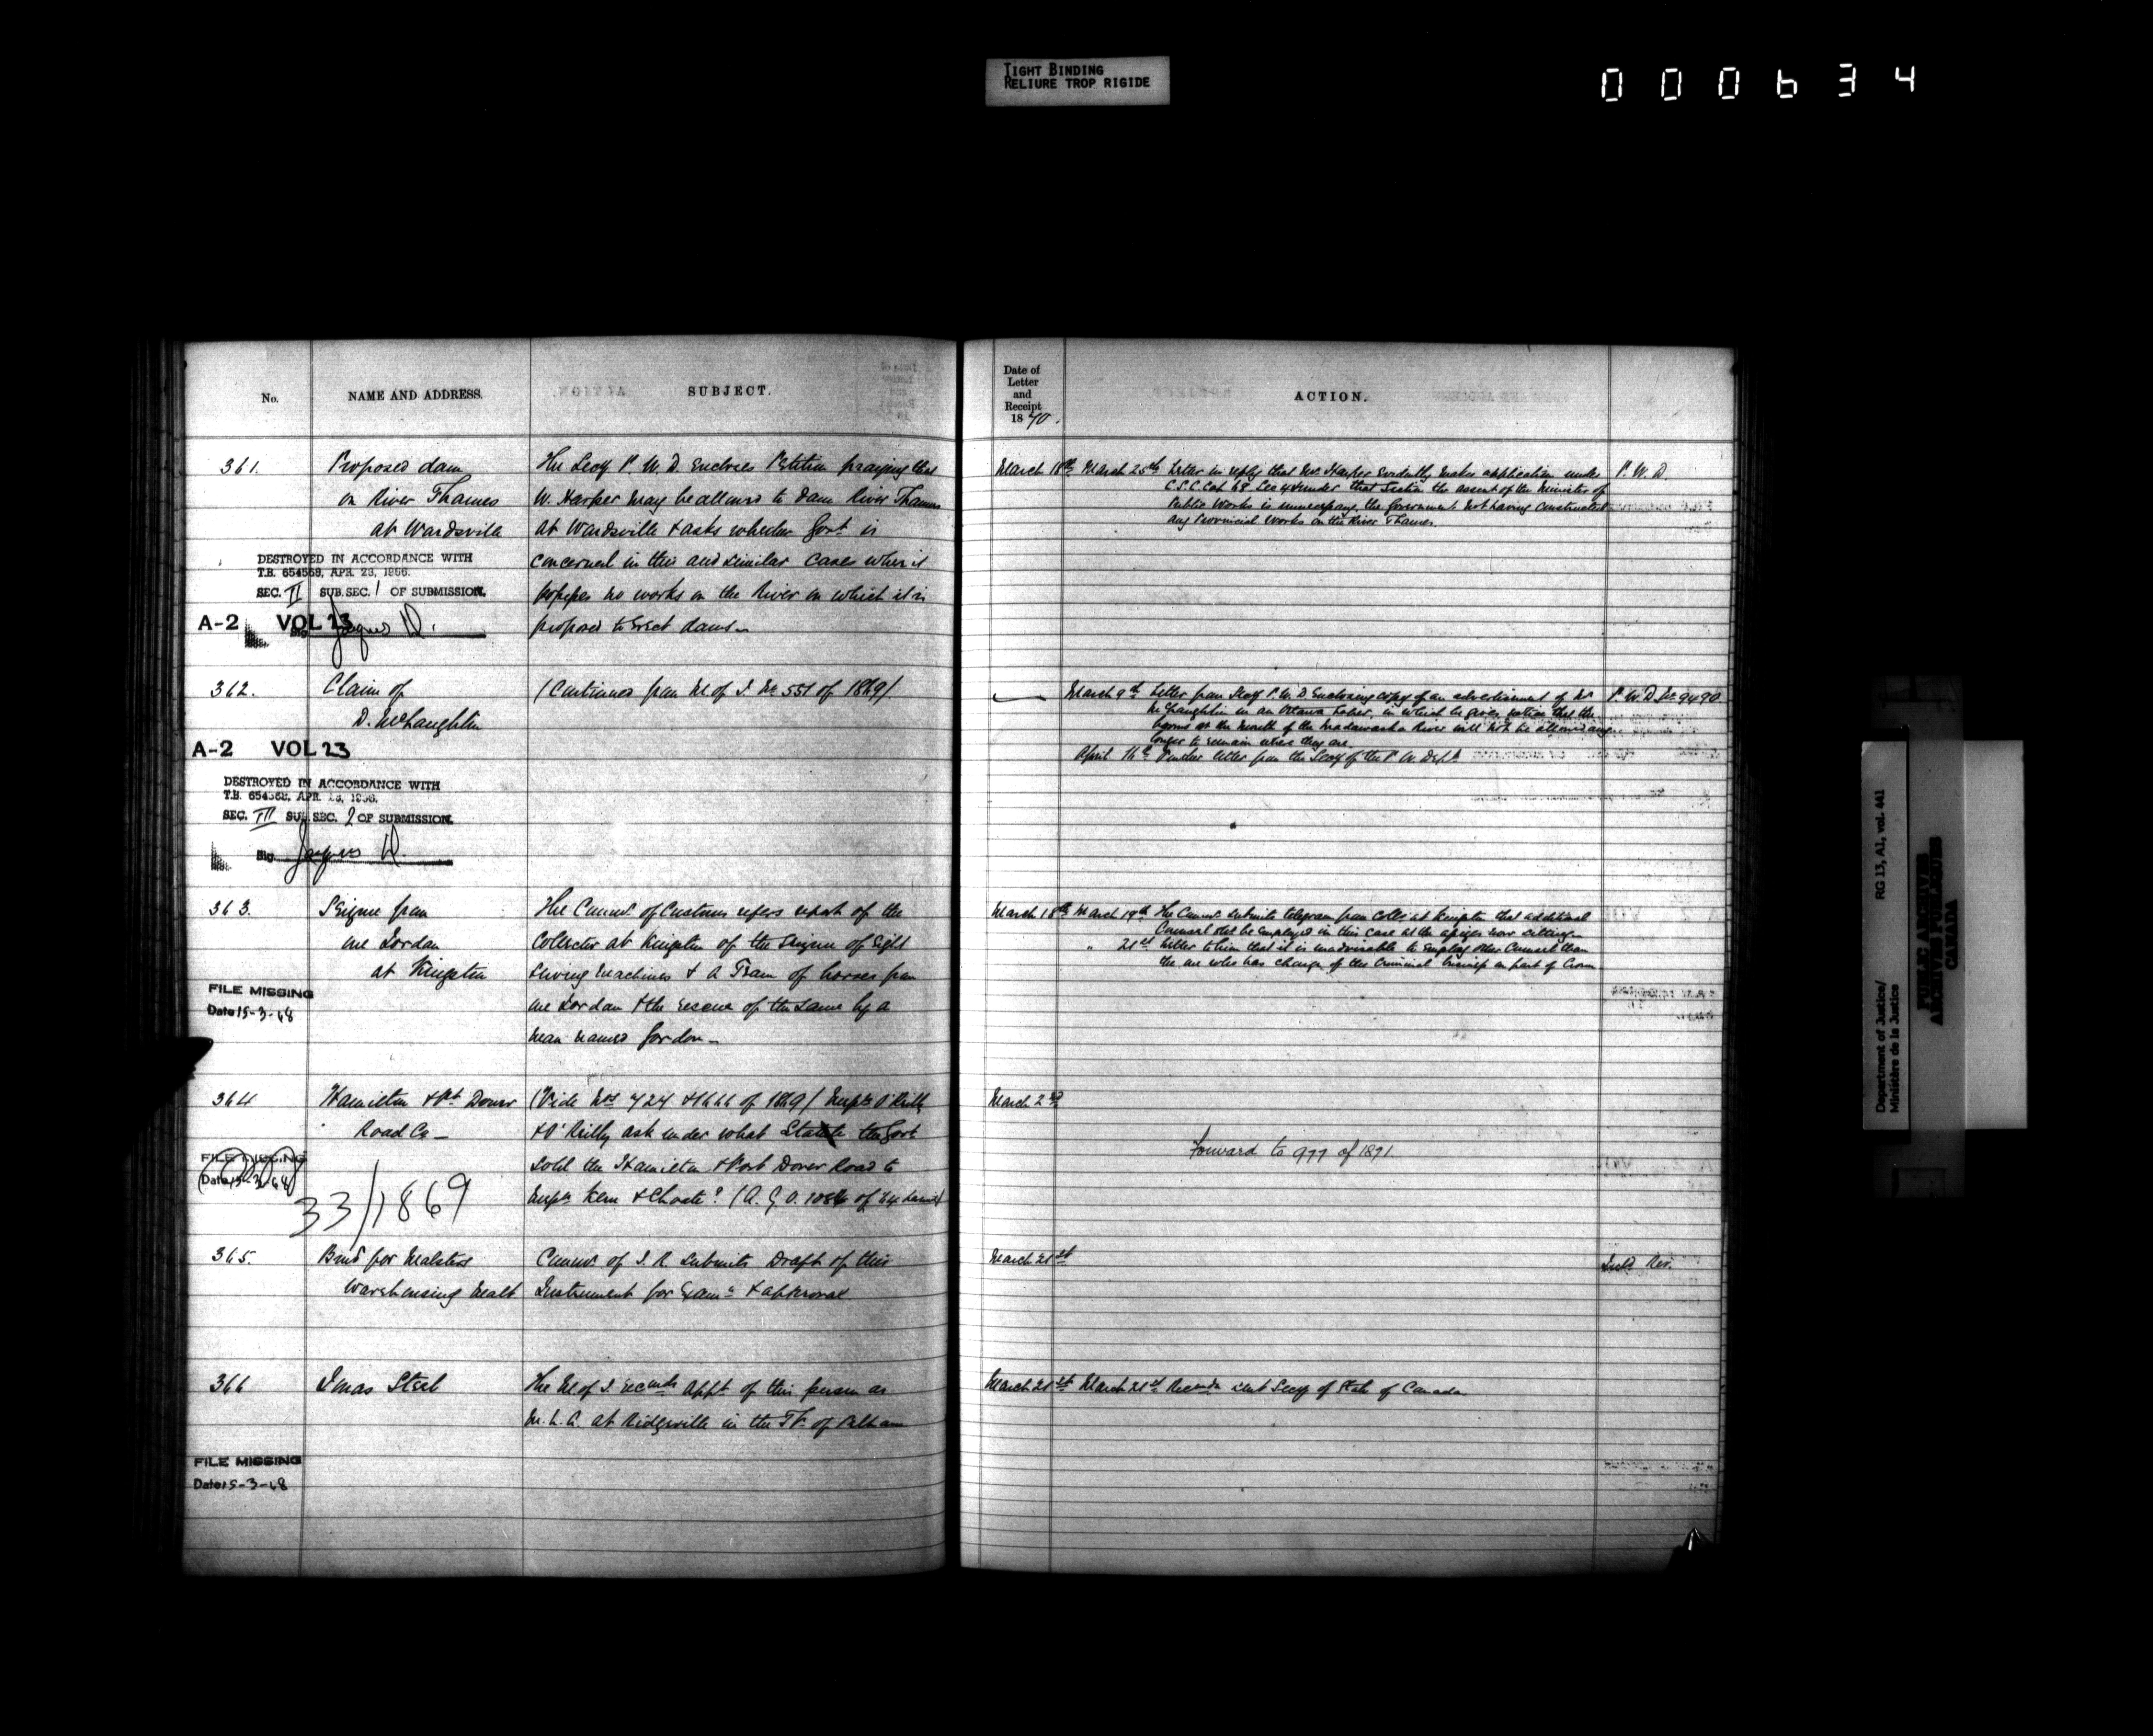 TIGHT BINDING
RELIURE TROP RIGIDE
000634
No.
NAME AND ADDRESS.
SUBJECT.
361.
Proposed dam
on River Thames
at Wardsville
The Secy P. W. D. Encloses Petition praying that
W. Harper may be allowed to dam River Thames
at Wardsville & asks whether Govt is
concerned in this and similar cases when it
possesses no works on the River on which it is
proposed to Erect dams.
DESTROYED IN ACCORDANCE WITH
T.B. 654569, APR. 23, 1956.
SEC. II SUB.SEC. 1 OF SUBMISSION.
A-2 VOL 23
362.
Claim of
D. McLaughlin
(Continued from M of J. No 551 of 1869)
A-2 VOL 23
DESTROYED IN ACCORDANCE WITH
T.B. 654568, APR. 23, 1956.
SEC. III SUB.SEC. 2 OF SUBMISSION.
Sig.
363.
Seizure from
one Jordan
at Kingston
The Commr of Customs refers report of the
Collector at Kingston of the seizure of Eight
Sewing Machines & a Team of horses from
one Jordan & the rescue of the same by a
man named Gordon
FILE MISSING
Date 15-3-68
364
Hamilton & Pt Dover
Road Co
(Vide Nos 724 of 1869)
& O'Reilly ask under what Statute the Govt
sold the Hamilton & Port Dover Road to
Messrs Kern & Choate?
FILE MISSING
Date 15-3-68
33/1869
365.
Bond for Malsters
Warehousing Malt
Commr of I. R. submits Draft of this
Instrument for Examn & approval
366
Jonas Steel
The M of J. recmds appt of this person as
at Ridgeville in the Tp of Pelham
FILE MISSING
Date 15-3-68
Date of
Letter
and
Receipt
1870.
ACTION.
March 18th
March 25th Letter in reply that Mr Harper evidently makes application under
C.S.C. Cap 48 Sec 4 & under that Section the assent of the Minister of
Public Works is unnecessary, the Government not having constructed
any Provincial works on the River Thames.
P. W. D.
March 9th Letter from Secy P. W. D. Enclosing copy of an advertisement of Mr
McLaughlin in an Ottawa Paper, in which he gives notice that the
booms at the mouth of the Madawaska River will not be allowed any
longer to remain where they are.
P. W. D. No 9490
April Further letter from the Secy of the P. W. Dept
March 18th
March 19th The Commr submits telegram from Collr at Kingston that additional
Counsel be employed in this case at the assizes now sitting
" 21st Letter to him that it is inadvisable to employ other Counsel than
the one who has charge of the Criminal business on part of Crown
March 2nd
Forward to 977 of 1891
March 21st
Inld Rev.
March 21st
March 21st Recmdn sent Secy of State of Canada
Department of Justice/
Ministère de la Justice
RG 13, A1, vol. 441
PUBLIC ARCHIVES
ARCHIVES PUBLIQUES
CANADA